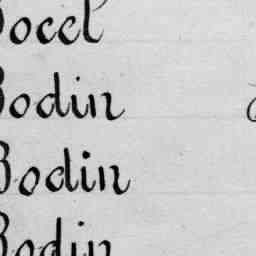 Bocel
Bodin
Bodin
Bodin